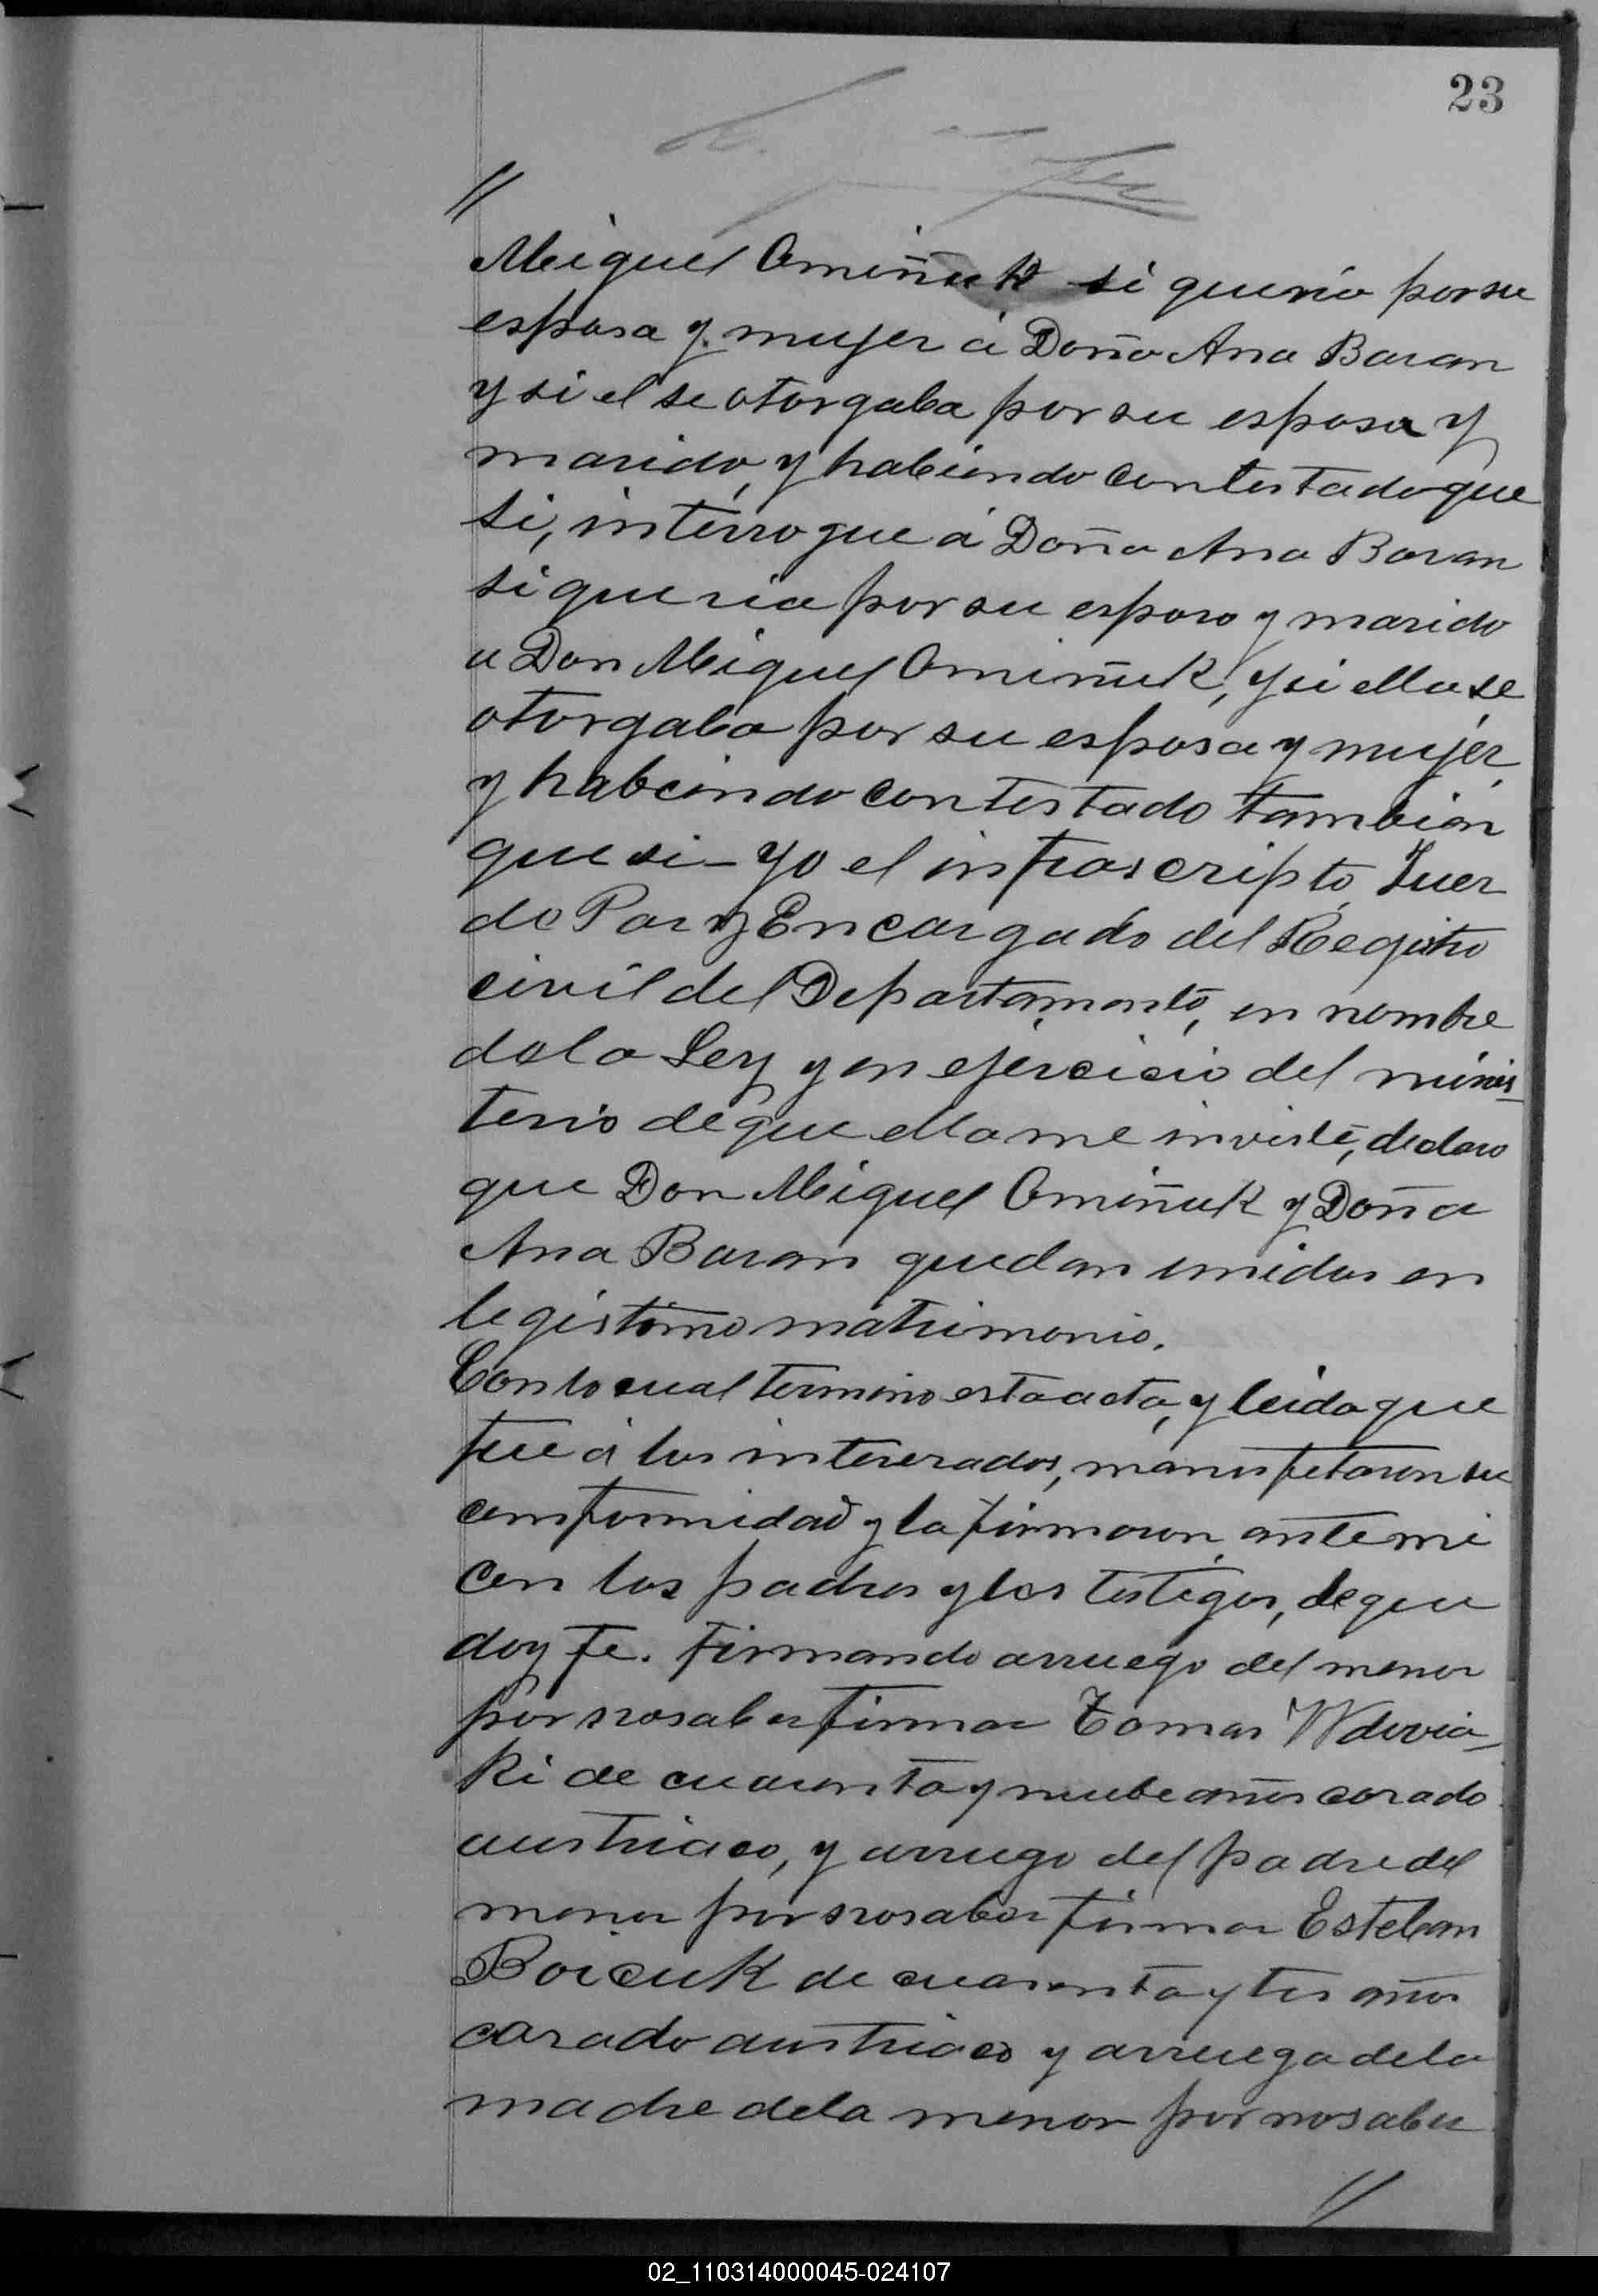 23
//
Miguel Omiñuk si queria por su
esposa y mujer á Doña Ana Baran
y si el se otorgaba por su esposa y
marido, y habiendo contestado que
si, interrogue á Doña Ana Baran
si queria por su esposo y marido
a Don Miguel Omiñuk, y si ella se
otorgaba por su esposa y mujer,
y habeindo contestado tambien
que si – Yo el infrascripto, Juez
de Paz y Encargado del Registro
civil del Departamento, en nombre
de la Ley y en ejercicio del minis
terio de que ella me inviste, declaro
que Don Miguel Omiñuk y Doña
Ana Baran quedan unidos en
legistimo matrimonio.
Con lo cual termino esta acta, y leida que
fue á los interesados, manisfetaron su
conformidad y la firmaron, ante mi
con los padres y los testigos, de que
doy fe. Firmando arruego del menor
por no saber firmar Tomas Wdovia_
ki de cuarenta y nuebe años casado
austriaco, y arruego del padre del
menor por no saber firmar Esteban
Boicuk de cuarenta y tres años
casado austriaco y arruega de la
madre dela menor por no saber
//
02_110314000045-024107